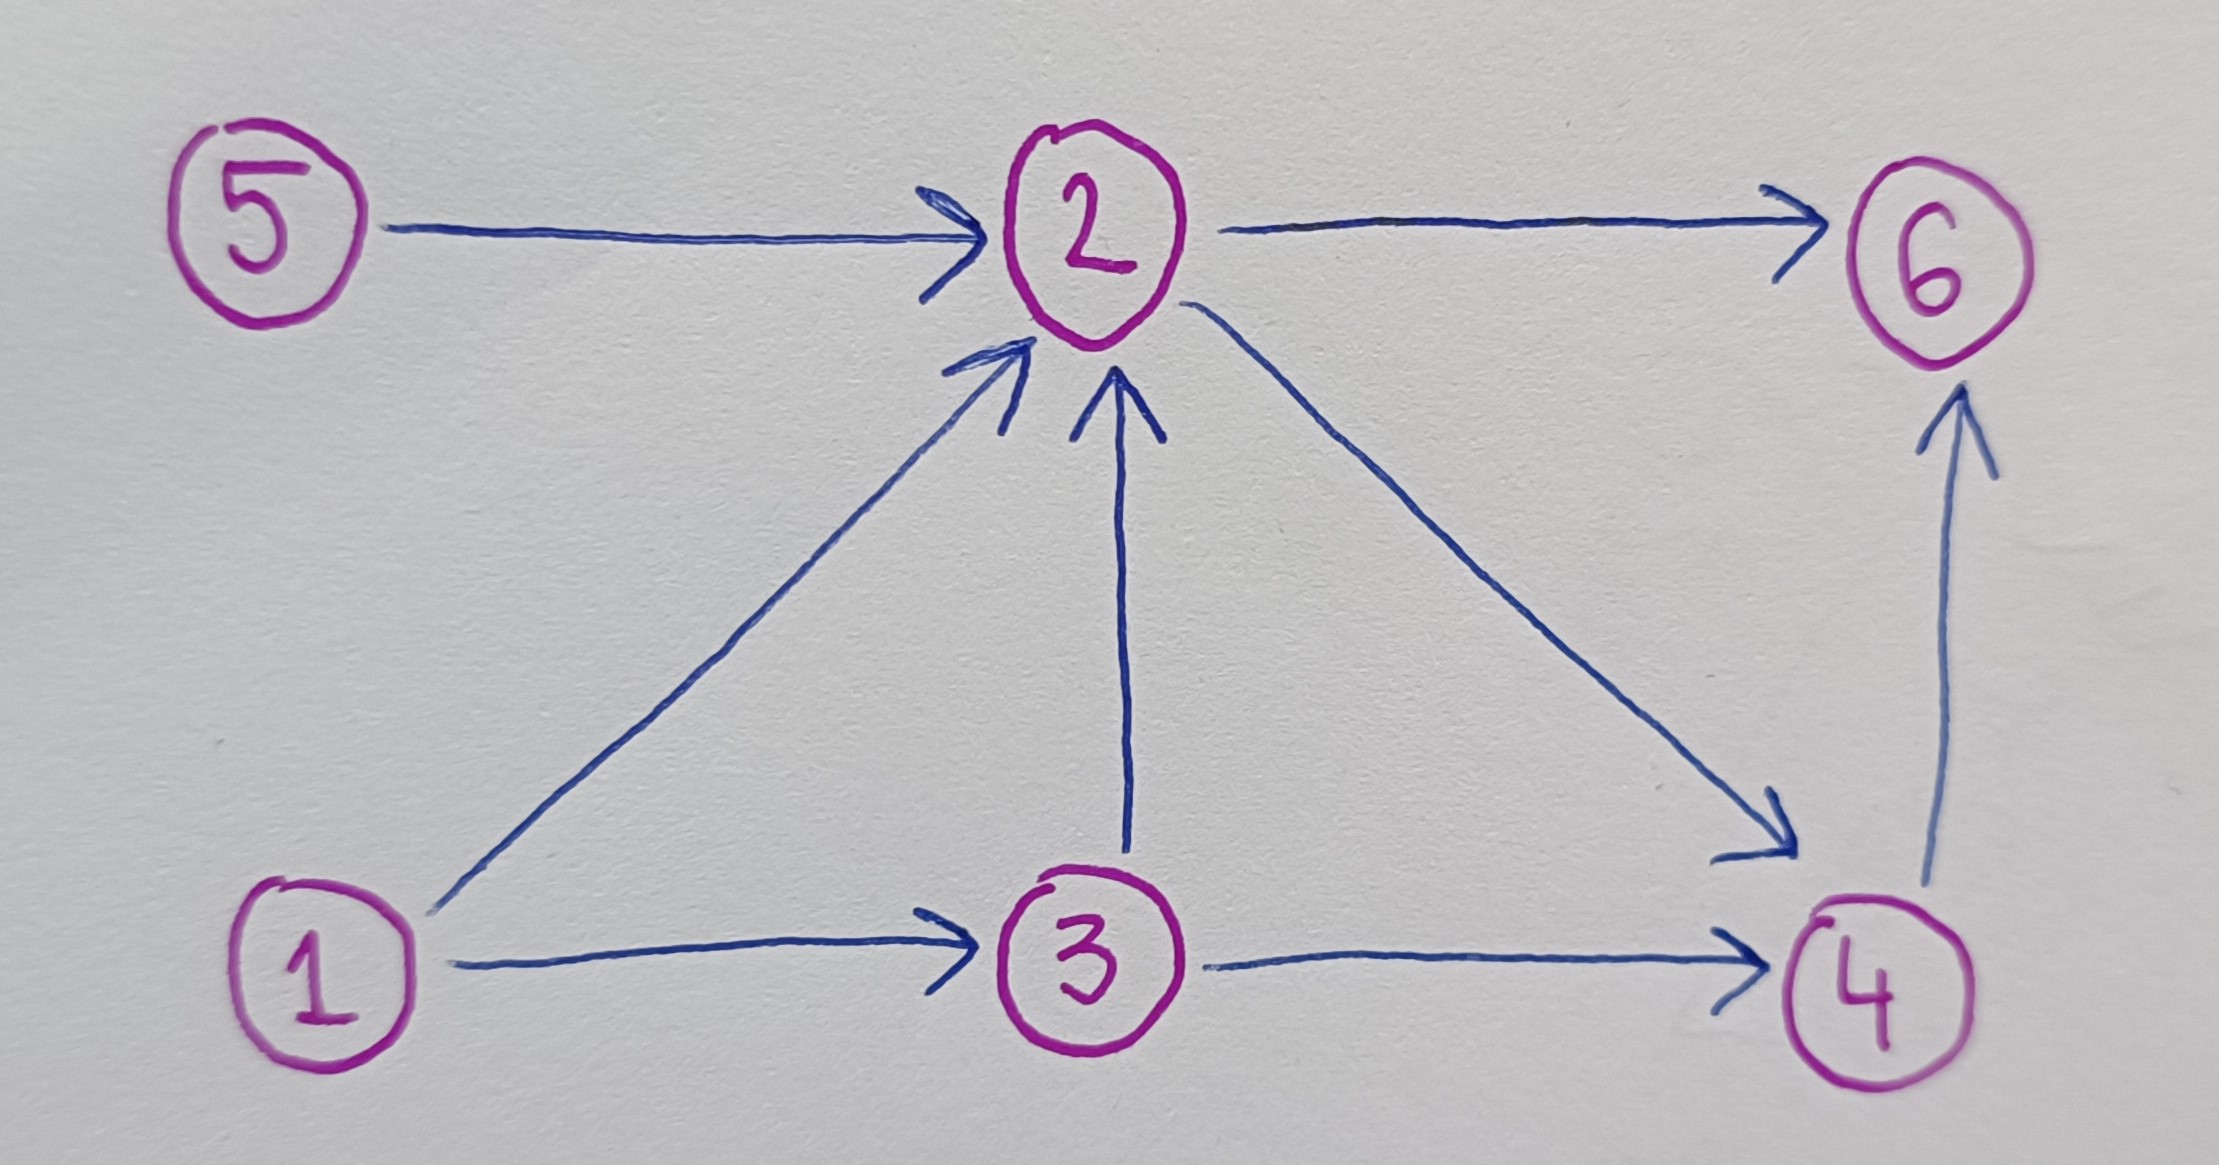 5 2 6
1 3 4